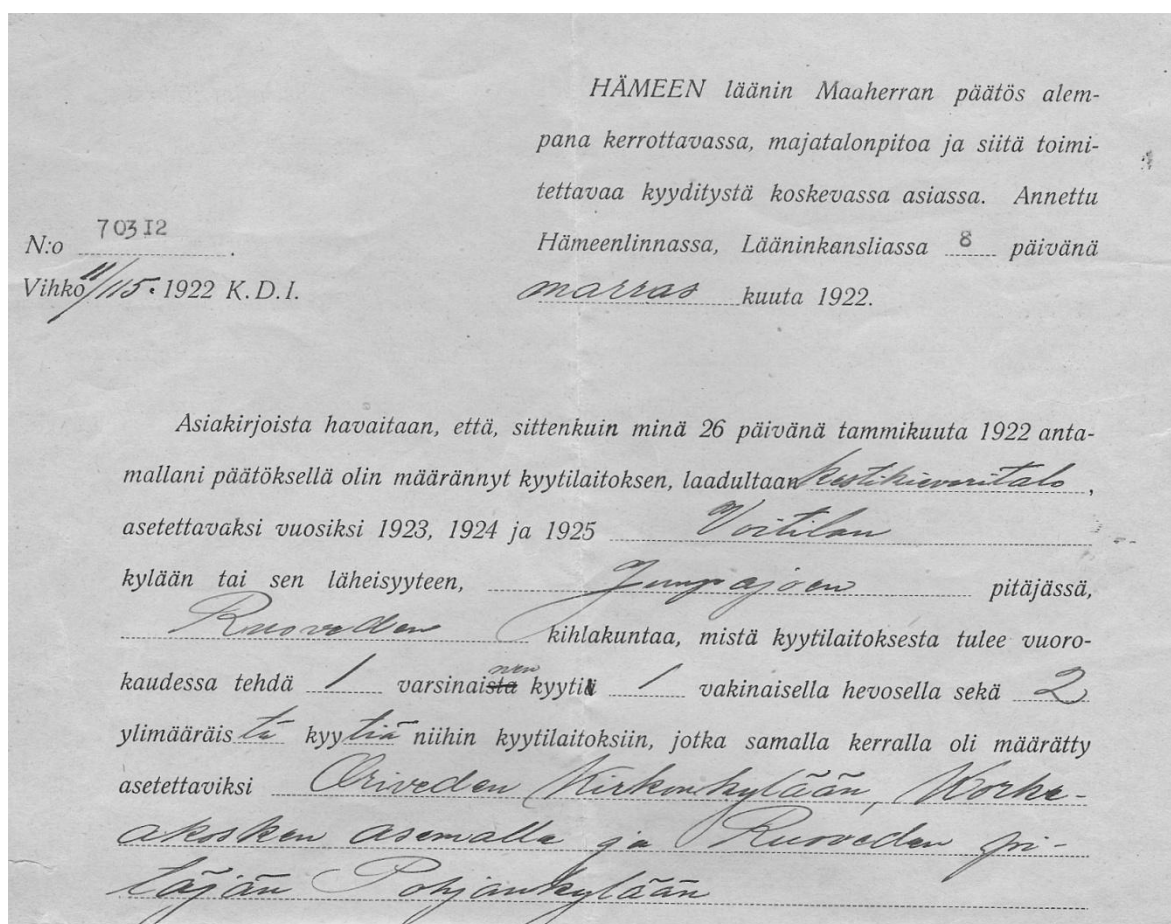 HÄMEEN läänin Maaherran päätös alem-
pana kerrottavassa, majatalonpitoa ja siitä toimi-
tettavaa kyyditystä koskevassa asiassa. Annettu
Hämeenlinnassa, Lääninkansliassa 8 päivänä
marras kuuta 1922.
N:o 70312.
Vihko 11/115. 1922 K. D. I.
Asiakirjoista havaitaan, että, sittenkuin minä 26 päivänä tammikuuta 1922 anta-
mallani päätöksellä olin määrännyt kyytilaitoksen, laadultaan kestikievaritalo,
asetettavaksi vuosiksi 1923, 1924 ja 1925 Voitilan
kylään tai sen läheisyyteen, pitäjässä,
Ruoveden kihlakuntaa, mistä kyytilaitoksesta tulee vuoro-
kaudessa tehdä 1 varsinainen kyyti 1 vakinaisella hevosella sekä 2
ylimääräistä kyytiä niihin kyytilaitoksiin, jotka samalla kerralla oli määrätty
asetettaviksi Oriveden Kirkonkylään, Korke-
akosken asemalle ja Ruoveden pi-
täjän Pohjankylään